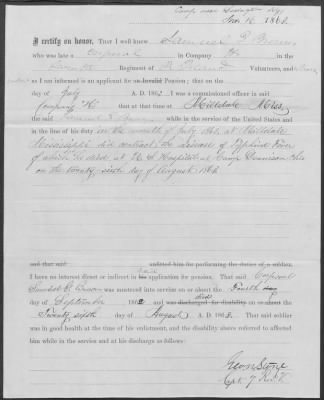 Camp near Lexington Ky
Nov 16 1863.
I certify on honor. That I well know Samuel E Brown
who was late a Corporal in Company "H" in the
Seventh Regiment of R. Island Volunteers, and whom
as I am informed is an applicant for an Invalid Pension; that on the
day of July A. D. 1863 I was a commissioned officer in said
Company "H" that at that time at Milldale Miss.
the said Samuel E. Brown while in the service of the United States and
in the line of his duty in the month of July 1863, at Milldale
Mississippi did contract the disease of Typhoid Fever
of which he died at U. S. Hospital at Camp Dennison Ohio
on the twenty sixth day of August 1863
and that said unfitted him for performing the duties of a soldier.
I have no interest direct or indirect in his application for pension. That said Corporal
Samuel E. Brown was mustered into service on or about the Fourth
day of September 1862 and was discharged for disability died on or about the
Twenty sixth day of August A. D. 1863. That said soldier
was in good health at the time of his enlistment, and the disability above referred to affected
him while in the service and at said time.
Geo. N Stone
Capt. 7 R.I.V.